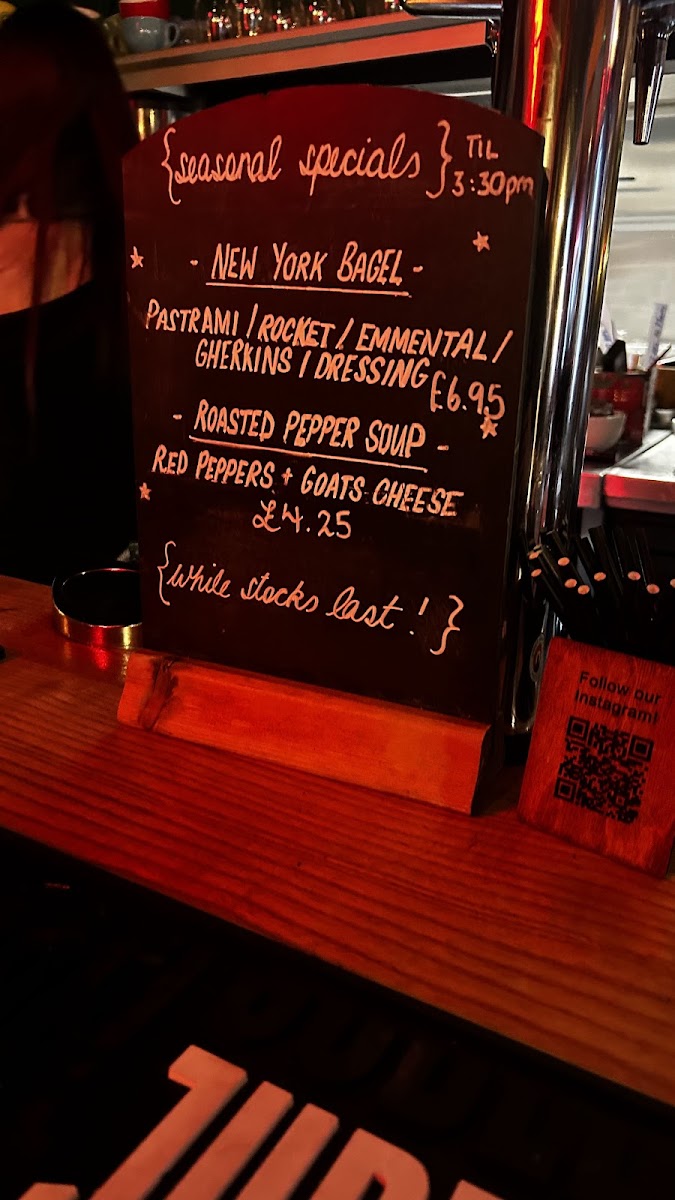 {seasonal specials} TIL
3:30pm
- NEW YORK BAGEL -
PASTRAMI / ROCKET / EMMENTAL /
GHERKINS / DRESSING £6.95
- ROASTED PEPPER SOUP -
RED PEPPERS + GOATS CHEESE
£4.25
{while stocks last!}
Follow our
Instagram!